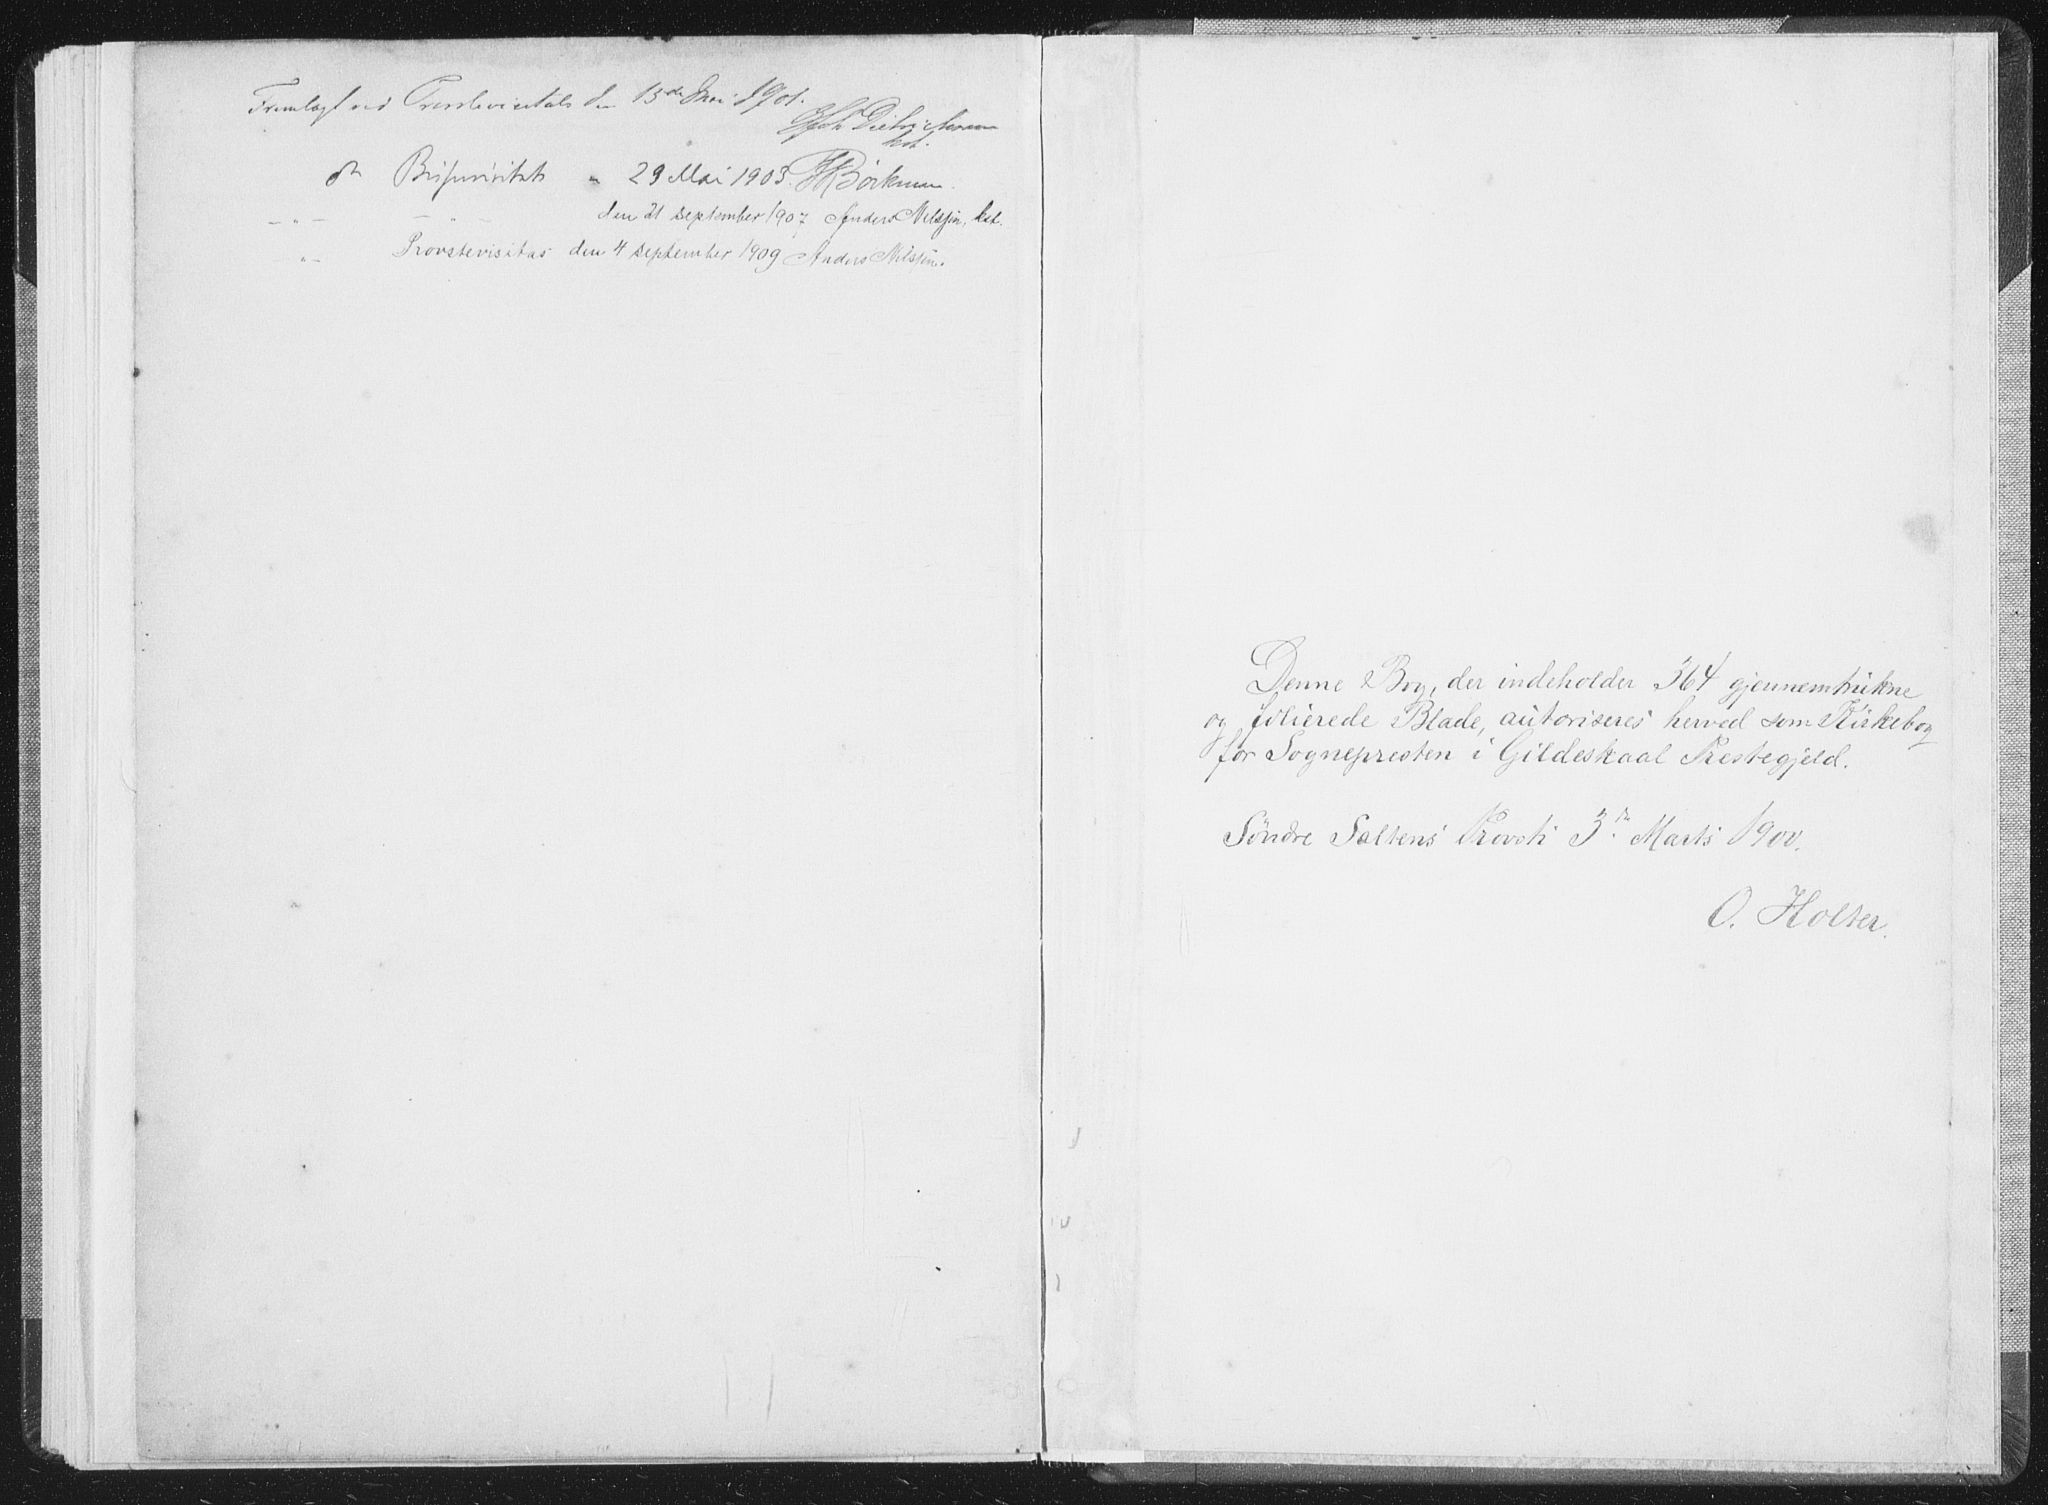 Fremlagt ved Provstevisitats den 15de Mai 1901.
Joh Dietrichson
kst.
do Bispevisitats " 29 Mai 1903. Börkman.
— " — — " — den 21 september 1907 Anders Nilssen, kst.
— " — Provstevisitas den 4 september 1909 Anders Nilssen.
Denne Bog, der indeholder 364 gjennemtrukne
og folierede Blade, autoriseres herved som Kirkebog
for Sognepresten i Gildeskaal Prestegjeld.
Söndre Saltens Provsti 3die Marts 1900.
O. Holter.